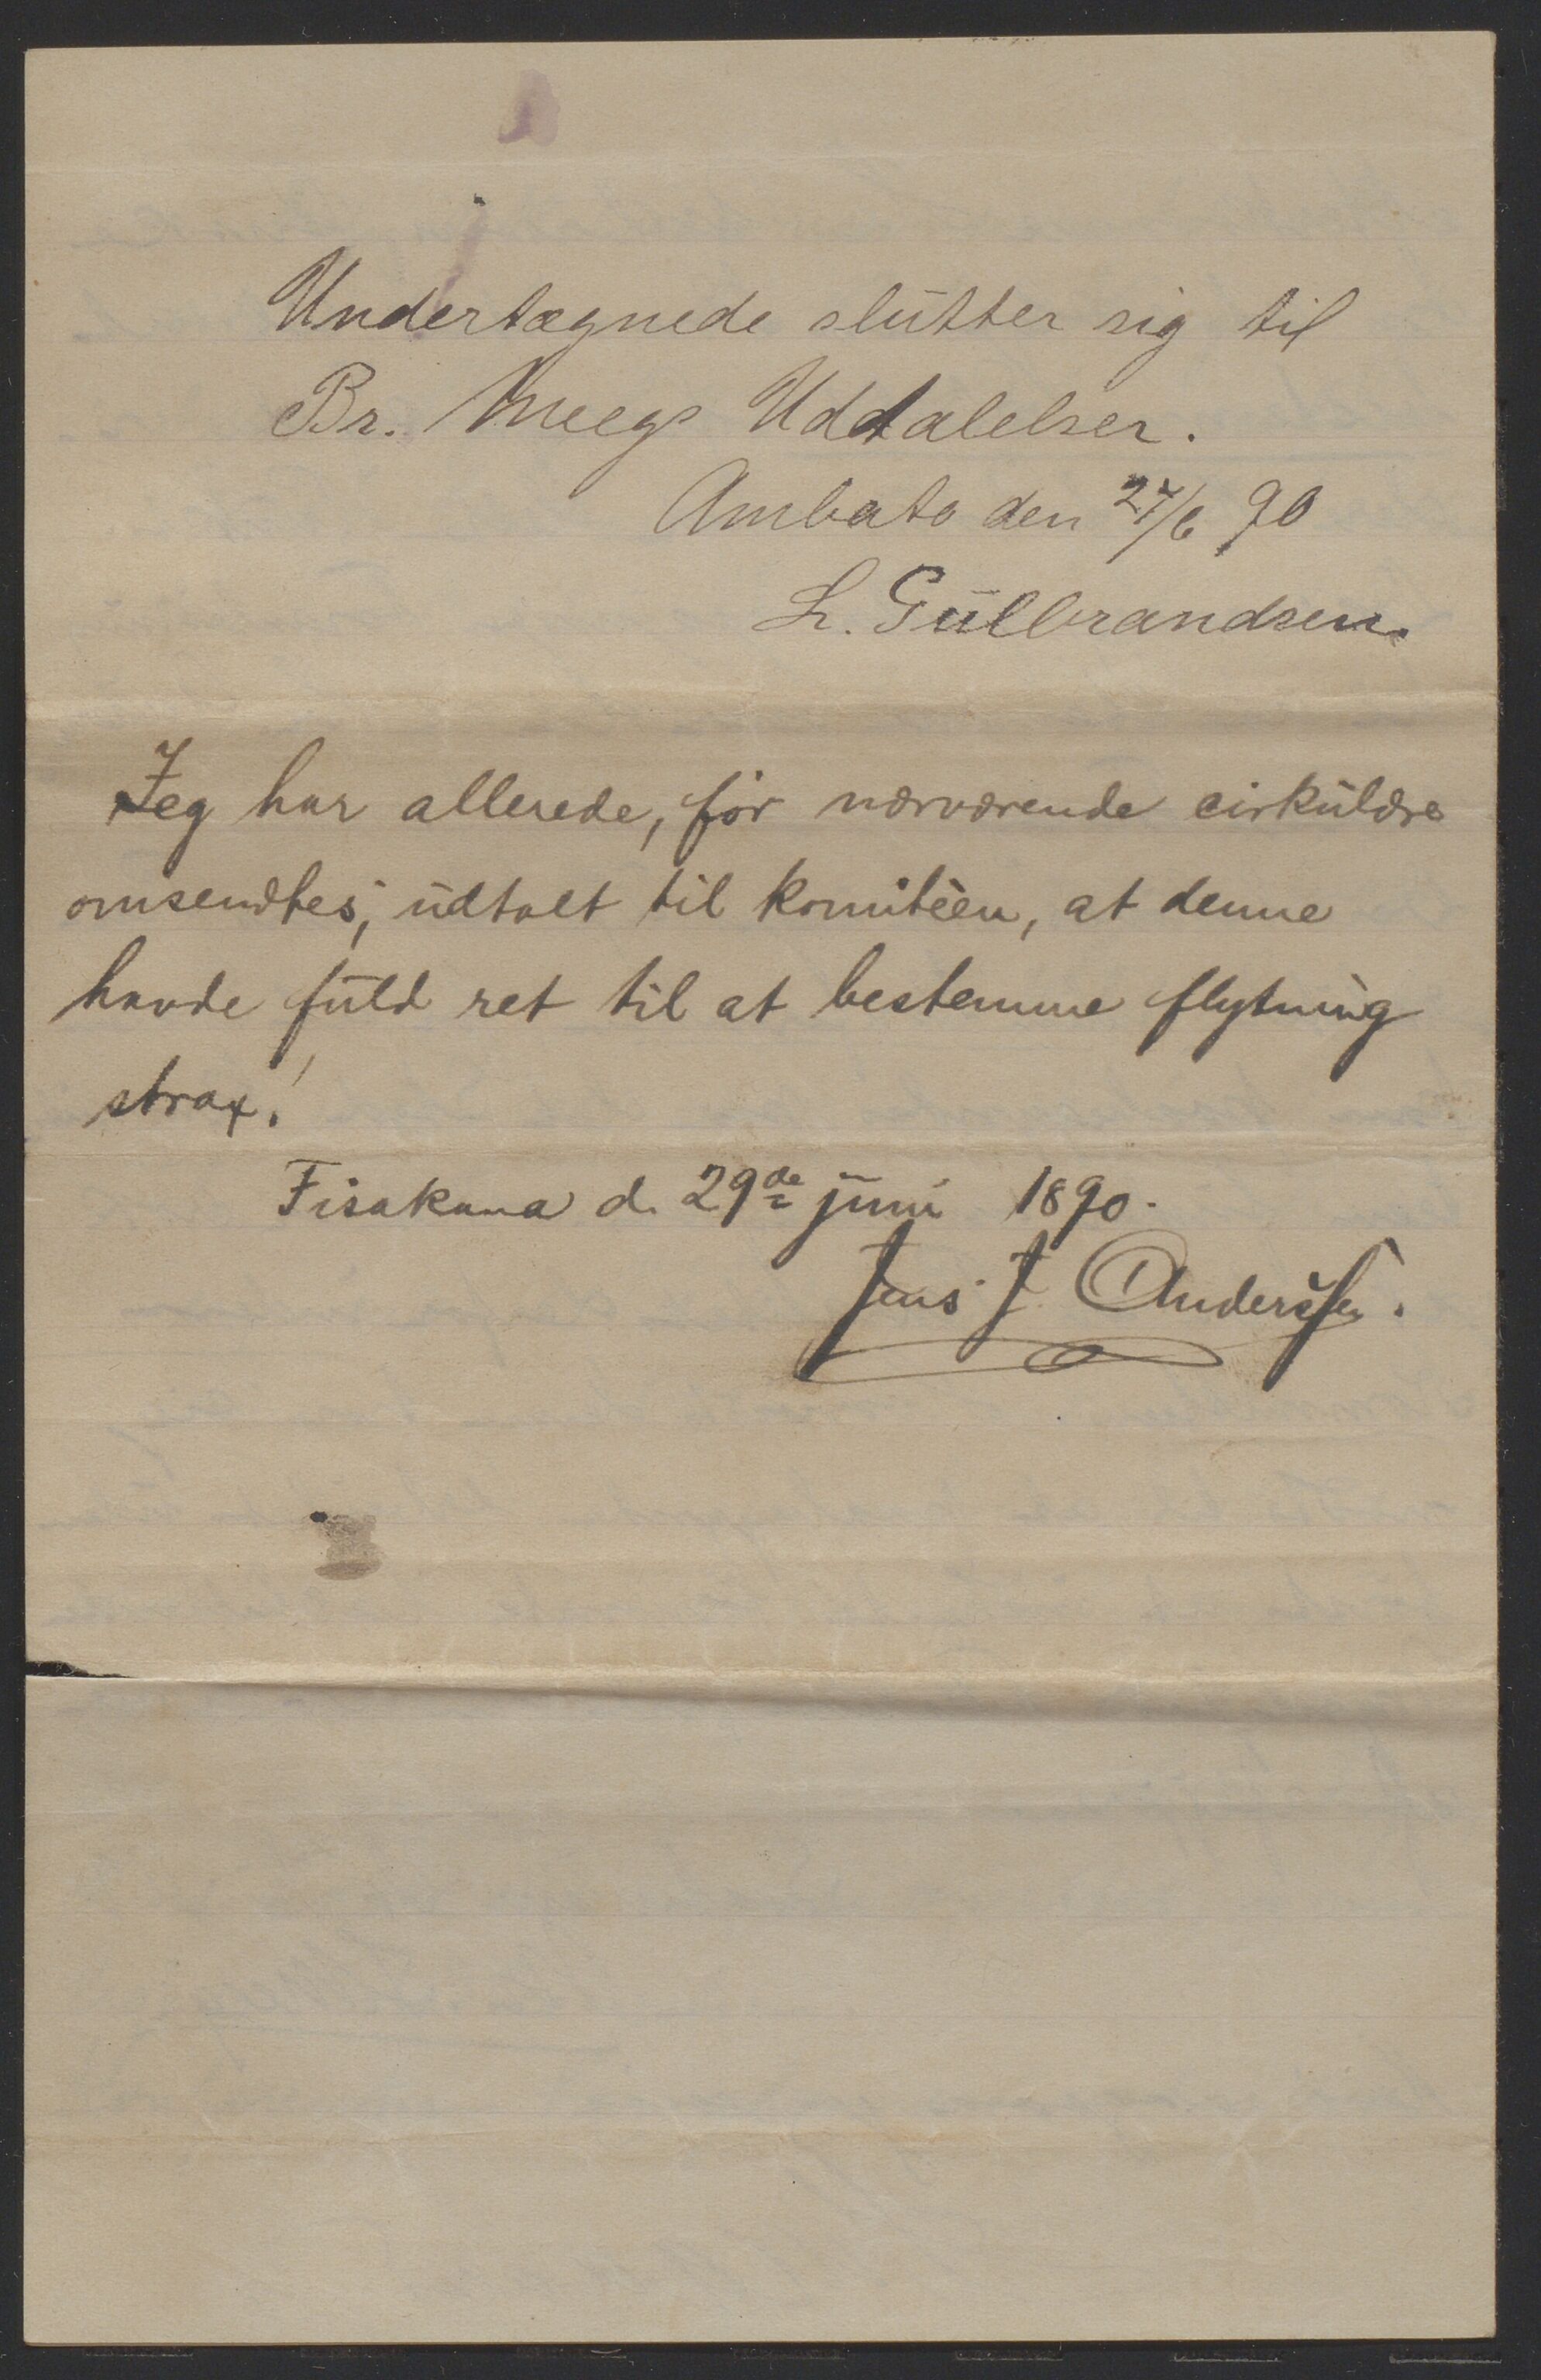 Undertegnede slutter sig til
Br. Meegs Uddtalelser.
Ambato den 27/6 90
L. Gulbrandsen.
Jeg har allerede, før nærværende cirkulære
omsendtes, udtalt til komitèen, at denne
havde fuld ret til at bestemme flytning
strax!
Fisakana d. 29de juni 1890.
Jens J. Anderssen.